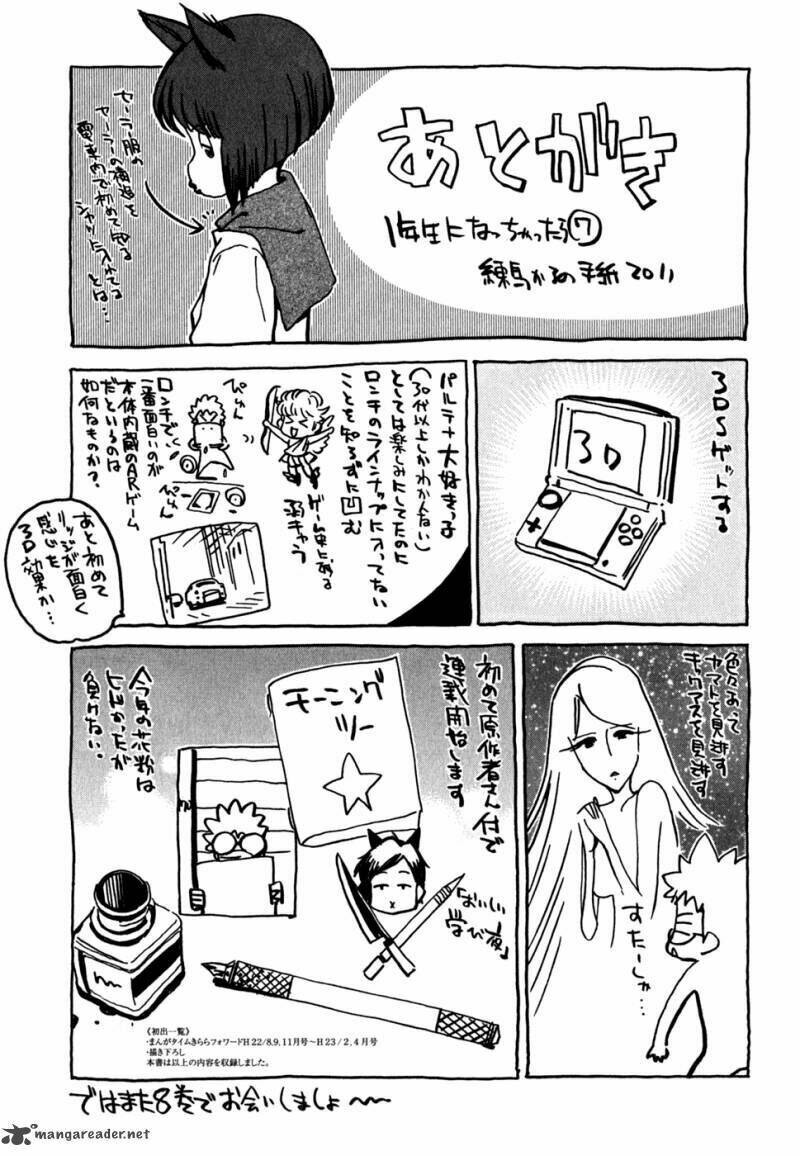 あとがき
1年生になっちゃったら⑦
練馬かるの手紙2011
セーラー服の
セーラーの構造を
電車内で初めて知る
シャツに入れてる
とは…
3DSゲットする
3D
パルテナ大好きっ子
（30代以上しかわかんない）
としては楽しみにしてたのに
ロンチのラインナップに入ってない
ことを知らずに凹む
ゲーム史にある
弱キャラ
ぴゅん
ぴゅん
ロンチで
一番面白いのが
本体内蔵のARゲーム
だというのは
如何なものか？
あと初めて
リッジが面白く
感じた
3D効果か…
色々あって
ヤマトを見逃す
キックアスを見逃す
すたーしゃ…
初めて原作者さん付で
連載開始します
モーニング
ツー
「おいしい
学び夜」
今年の花粉は
しんどかったが
負けない…
《初出一覧》
・まんがタイムきららフォワードH22/8,9,11月号～H23/2,4月号
・描き下ろし
本書は以上の内容を収録しました。
ではまた8巻でお会いしましょ〜
mangareader.net